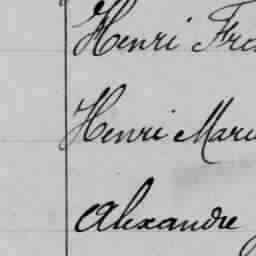 Henri Fra
Henri Mari
Alexandre